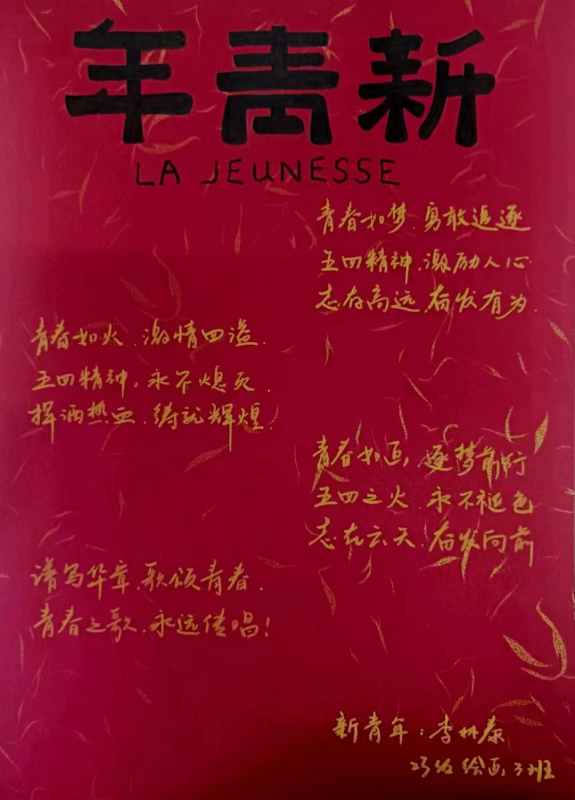 年青新
LA JEUNESSE
青春如梦,勇敢追逐
五四精神,激励人心
志存高远,奋发有为.
青春如火,激情四溢.
五四精神,永不熄灭.
挥洒热血,铸就辉煌.
青春如画,逐梦前行
五四之火 永不褪色
志在云天,奋发向前
谱写华章,歌颂青春.
青春之歌,永远传唱!
新青年:李林泰
23级绘画3班